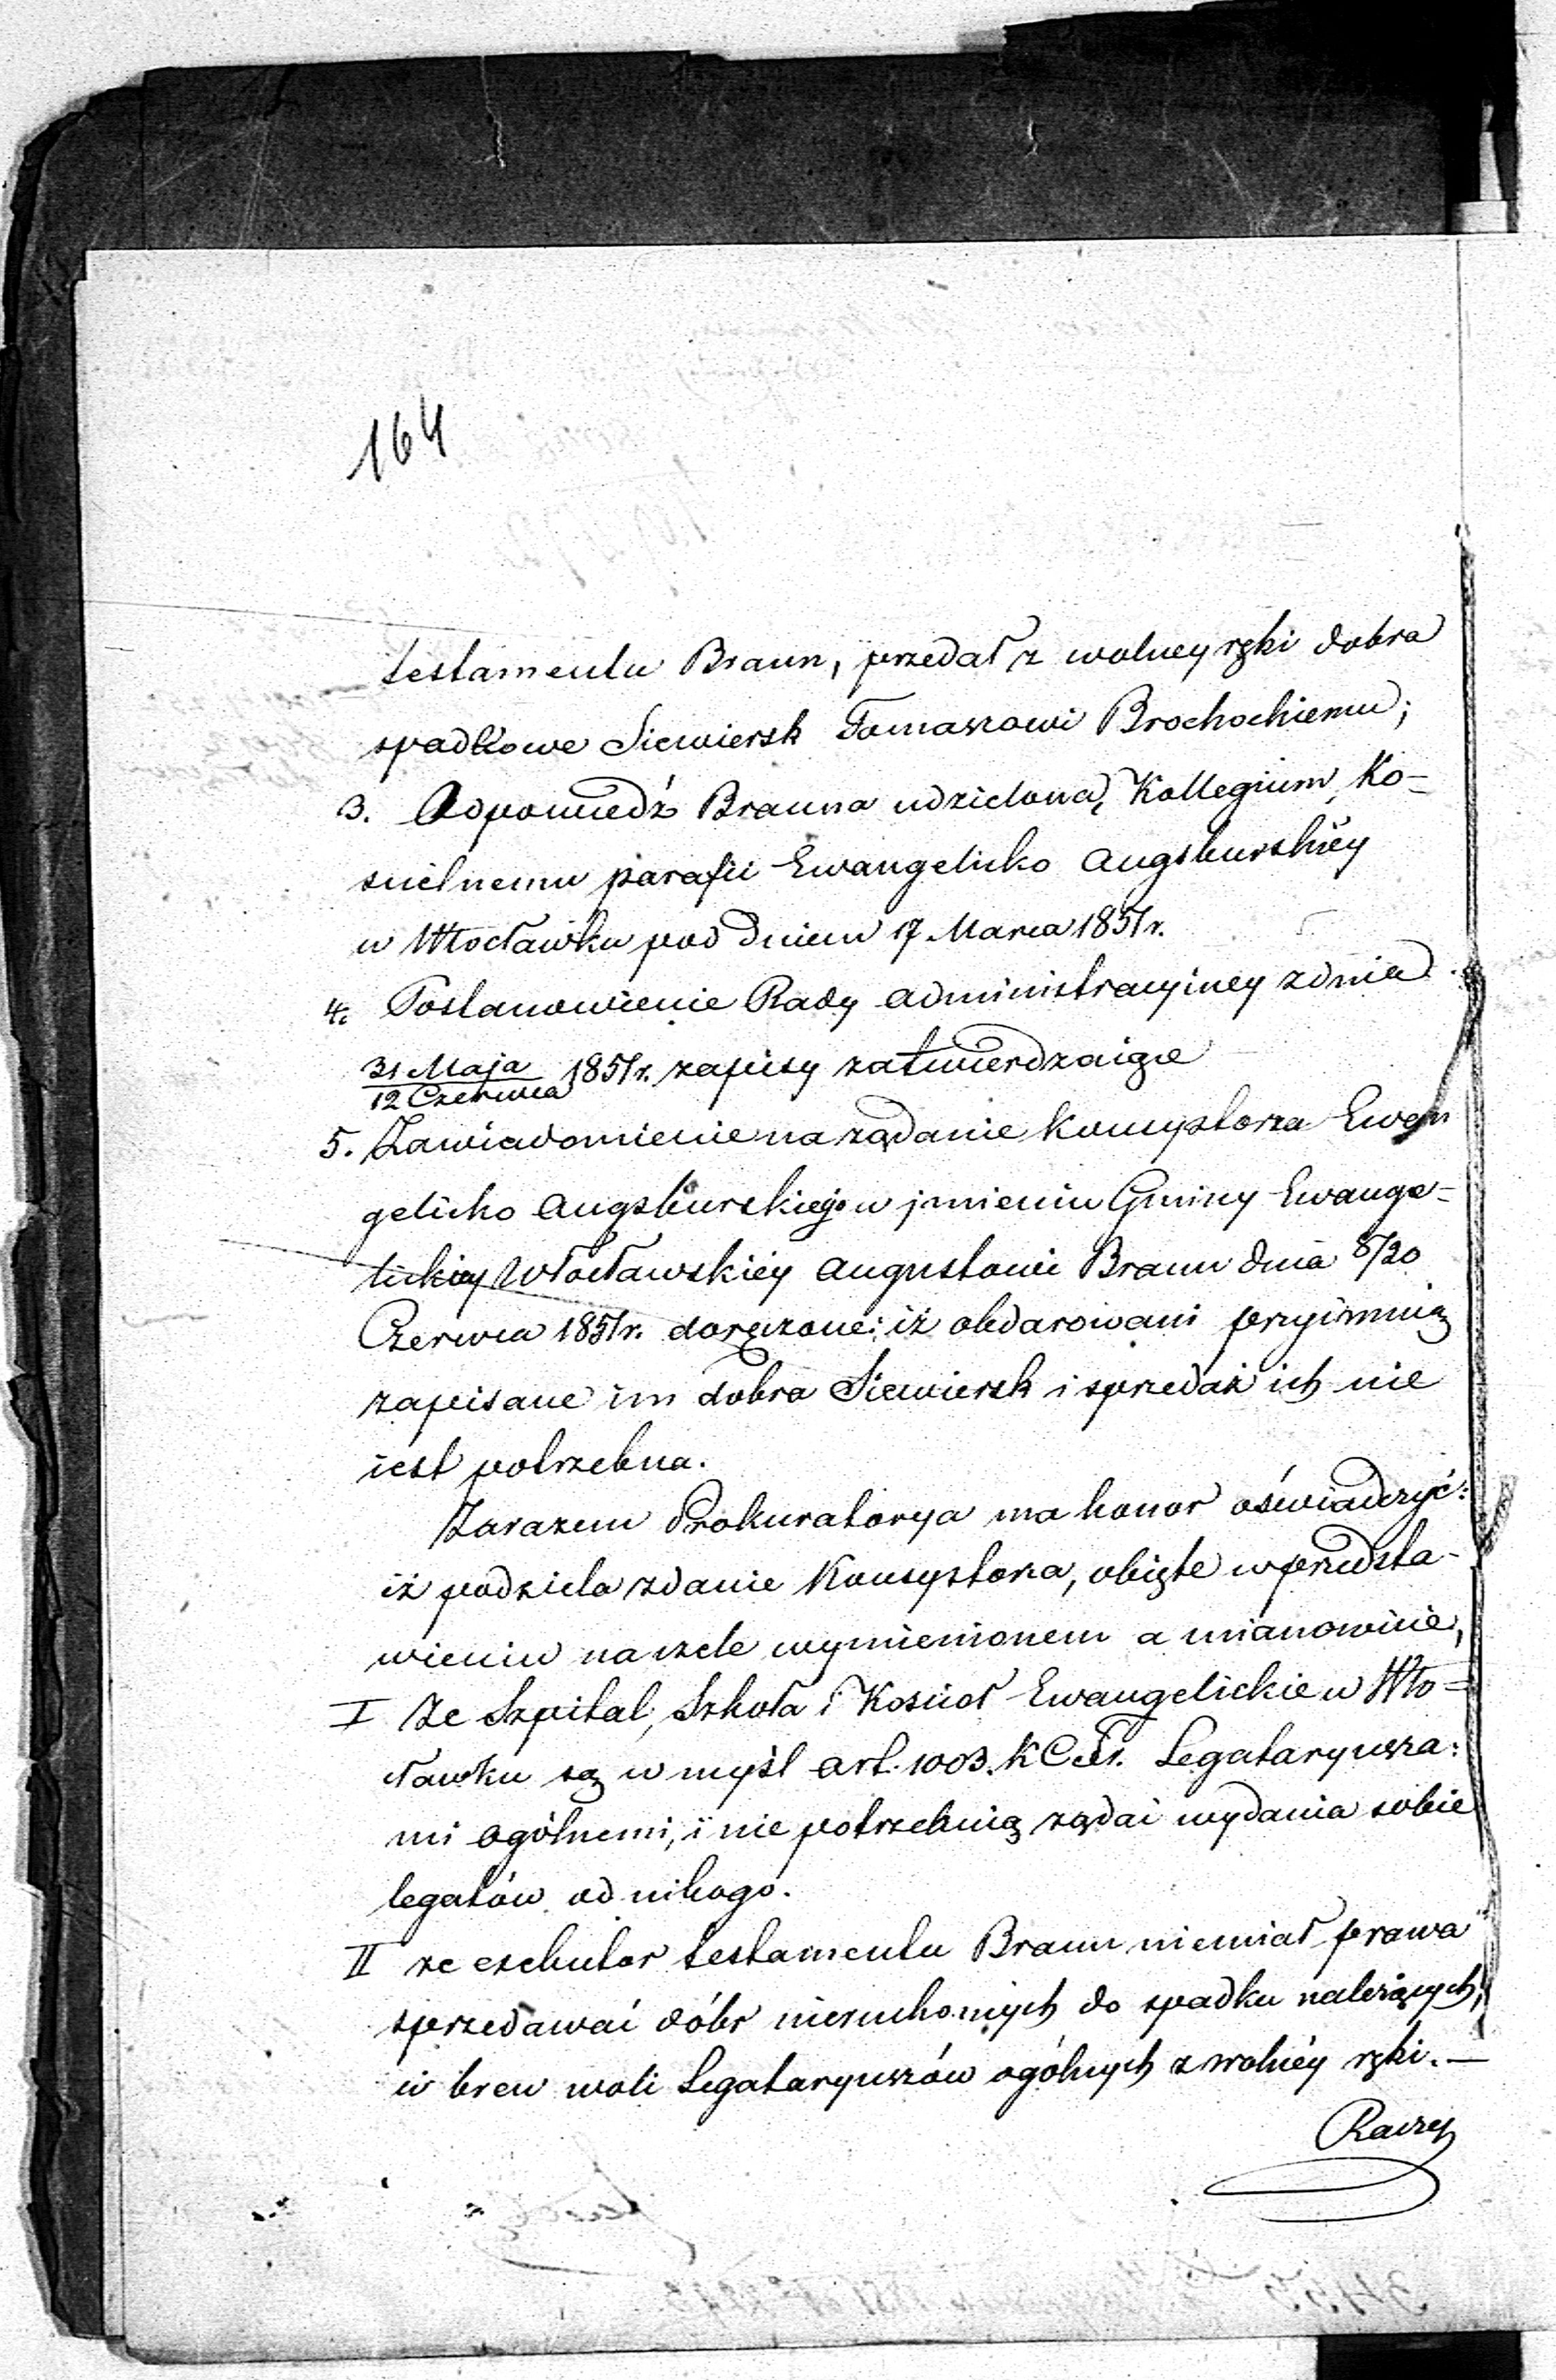 164
testamentu Braun, przedał z wolney ręki dobra
spadkowe Siewiersk Tomaszowi Brochockiemu;
3. Odpowiedź Brauna udzielona, Kollegium Ko-
scielnemu parafii Ewangelicko Augsburskiéy
w Włocławku pod dniem 17 Marca 1851 r.
4. Postanowienie Rady Administracyiney z dnia
31 Maja / 12 Czerwca 1851 r. zapisy zatwierdzaiące
5. Zawiadomienie na rządanie Konsystorza Ewan
gelicko Augsburskiego w jmieniu Gminy Ewange-
lickiey Włocławskiéy Augustowi Braun dnia 8/20
Czerwca 1851 r. doręczone: iż obdarowani przyimuią
zapisane im dobra Siewiersk i sprzedaż ich nie
iest potrzebna.
Zarazem Prokuratorya ma honor oświadczyć:
iż podziela zdanie Konsystorza, obięte w przedsta-
wieniu na czele wymienionem a mianowicie,
I Ze Szpital, Szkoła i Kościoł Ewangelickie w Wło-
cławku są w myśl Art. 1003. K C Fr. Legataryusza:
mi ogólnemi, i nie potrzebuią rządać wydania sobie
legatów od nikogo.
II ze exekutor testamentu Braun niemiał prawa
sprzedawać dóbr nieruchomych do spadku należących,
w brew woli Legataryuszów ogólnych z wolnéy ręki. —